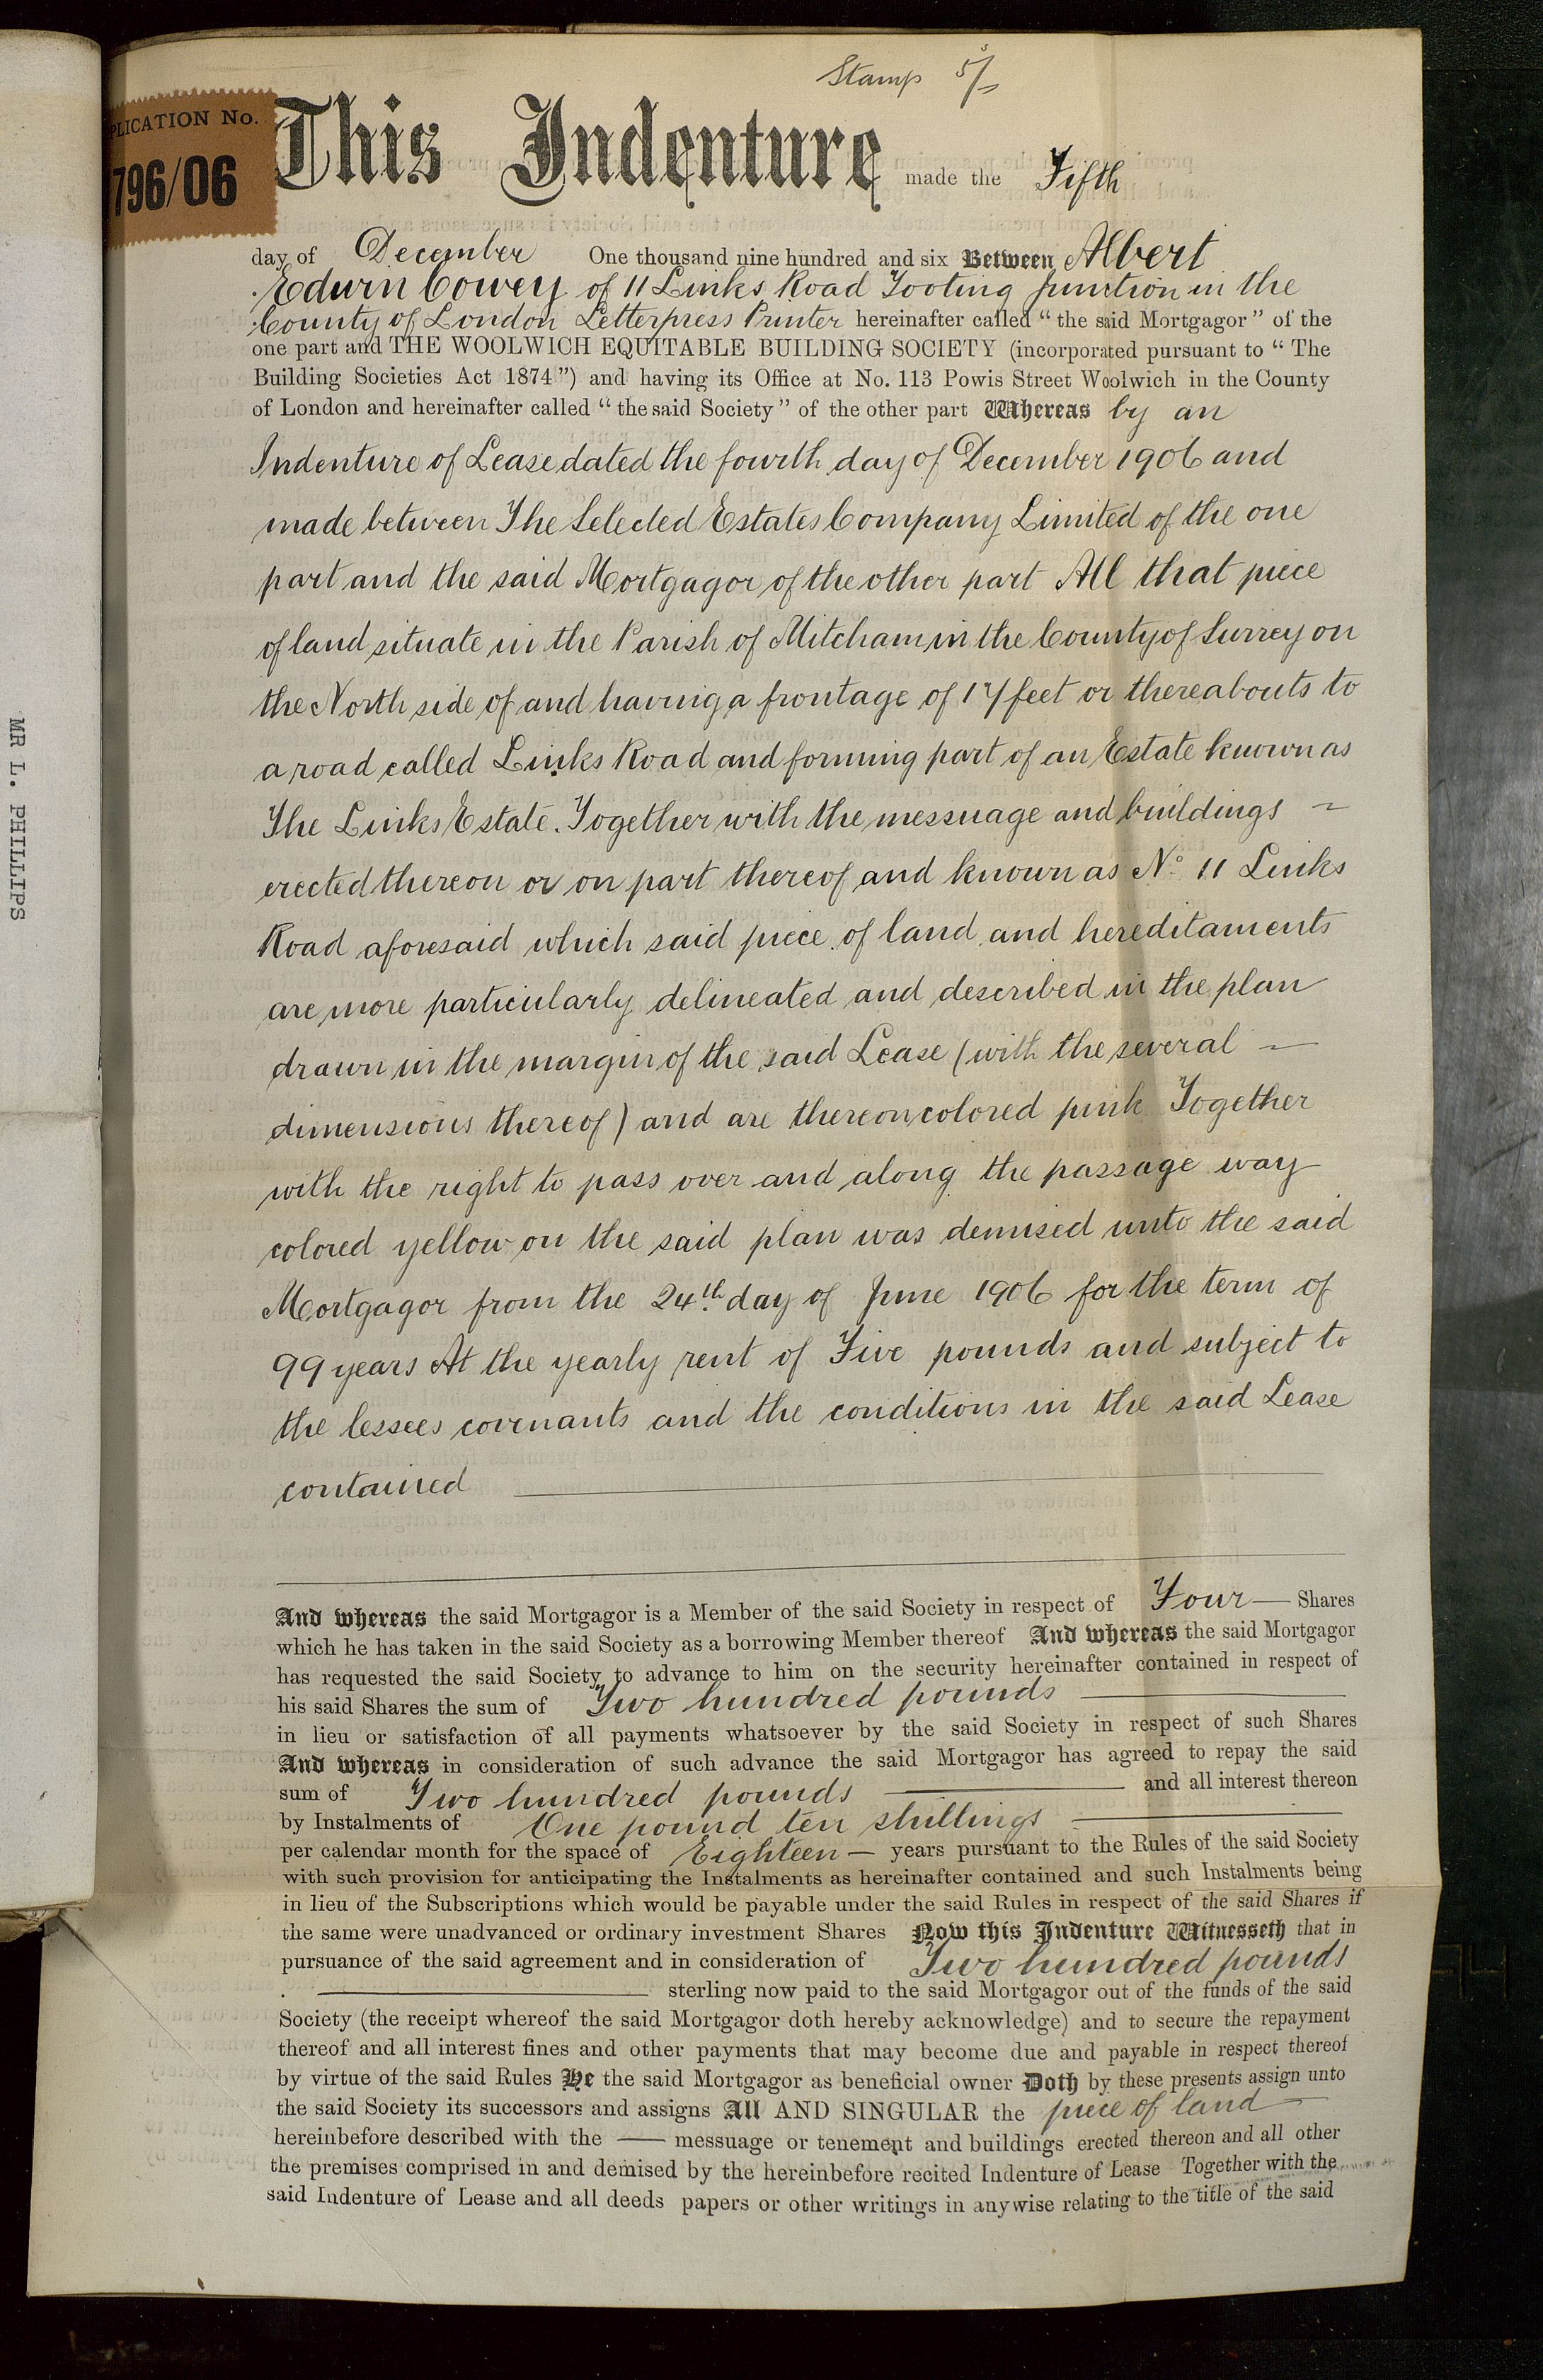 Stamp 5/-
PLICATION No.
796/06
This Indenture made the Fifth
day of December One thousand nine hundred and six Between Albert
Edwin Cowey of 11 Links Road Tooting Junction in the
County of London Letterpress Printer hereinafter called "the said Mortgagor" of the
one part and THE WOOLWICH EQUITABLE BUILDING SOCIETY (incorporated pursuant to "The
Building Societies Act 1874") and having its Office at No. 113 Powis Street Woolwich in the County
of London and hereinafter called "the said Society" of the other part Whereas by an
Indenture of Lease dated the fourth day of December 1906 and
made between The Selected Estates Company Limited of the one
part and the said Mortgagor of the other part All that piece
of land situate in the Parish of Mitcham in the County of Surrey on
the North side of and having a frontage of 17 feet or thereabouts to
a road called Links Road and forming part of an Estate known as
The Links Estate. Together with the messuage and buildings ~
erected thereon or on part thereof and known as No 11 Links
Road aforesaid which said piece of land and hereditaments
are more particularly delineated and described in the plan
drawn in the margin of the said Lease (with the several —
dimensions thereof) and are thereon colored pink Together
with the right to pass over and along the passage way
colored yellow on the said plan was demised unto the said
Mortgagor from the 24th day of June 1906 for the term of
99 years At the yearly rent of Five pounds and subject to
the lessees covenants and the conditions in the said Lease
contained
And whereas the said Mortgagor is a Member of the said Society in respect of Four — Shares
which he has taken in the said Society as a borrowing Member thereof And whereas the said Mortgagor
has requested the said Society to advance to him on the security hereinafter contained in respect of
his said Shares the sum of Two hundred pounds
in lieu or satisfaction of all payments whatsoever by the said Society in respect of such Shares
And whereas in consideration of such advance the said Mortgagor has agreed to repay the said
sum of Two hundred pounds — and all interest thereon
by Instalments of One pound ten shillings
per calendar month for the space of Eighteen — years pursuant to the Rules of the said Society
with such provision for anticipating the Instalments as hereinafter contained and such Instalments being
in lieu of the Subscriptions which would be payable under the said Rules in respect of the said Shares if
the same were unadvanced or ordinary investment Shares Now this Indenture Witnesseth that in
pursuance of the said agreement and in consideration of Two hundred pounds
sterling now paid to the said Mortgagor out of the funds of the said
Society (the receipt whereof the said Mortgagor doth hereby acknowledge) and to secure the repayment
thereof and all interest fines and other payments that may become due and payable in respect thereof
by virtue of the said Rules He the said Mortgagor as beneficial owner Doth by these presents assign unto
the said Society its successors and assigns All AND SINGULAR the piece of land
hereinbefore described with the — messuage or tenement and buildings erected thereon and all other
the premises comprised in and demised by the hereinbefore recited Indenture of Lease Together with the
said Indenture of Lease and all deeds papers or other writings in anywise relating to the title of the said
MR L. PHILLIPS